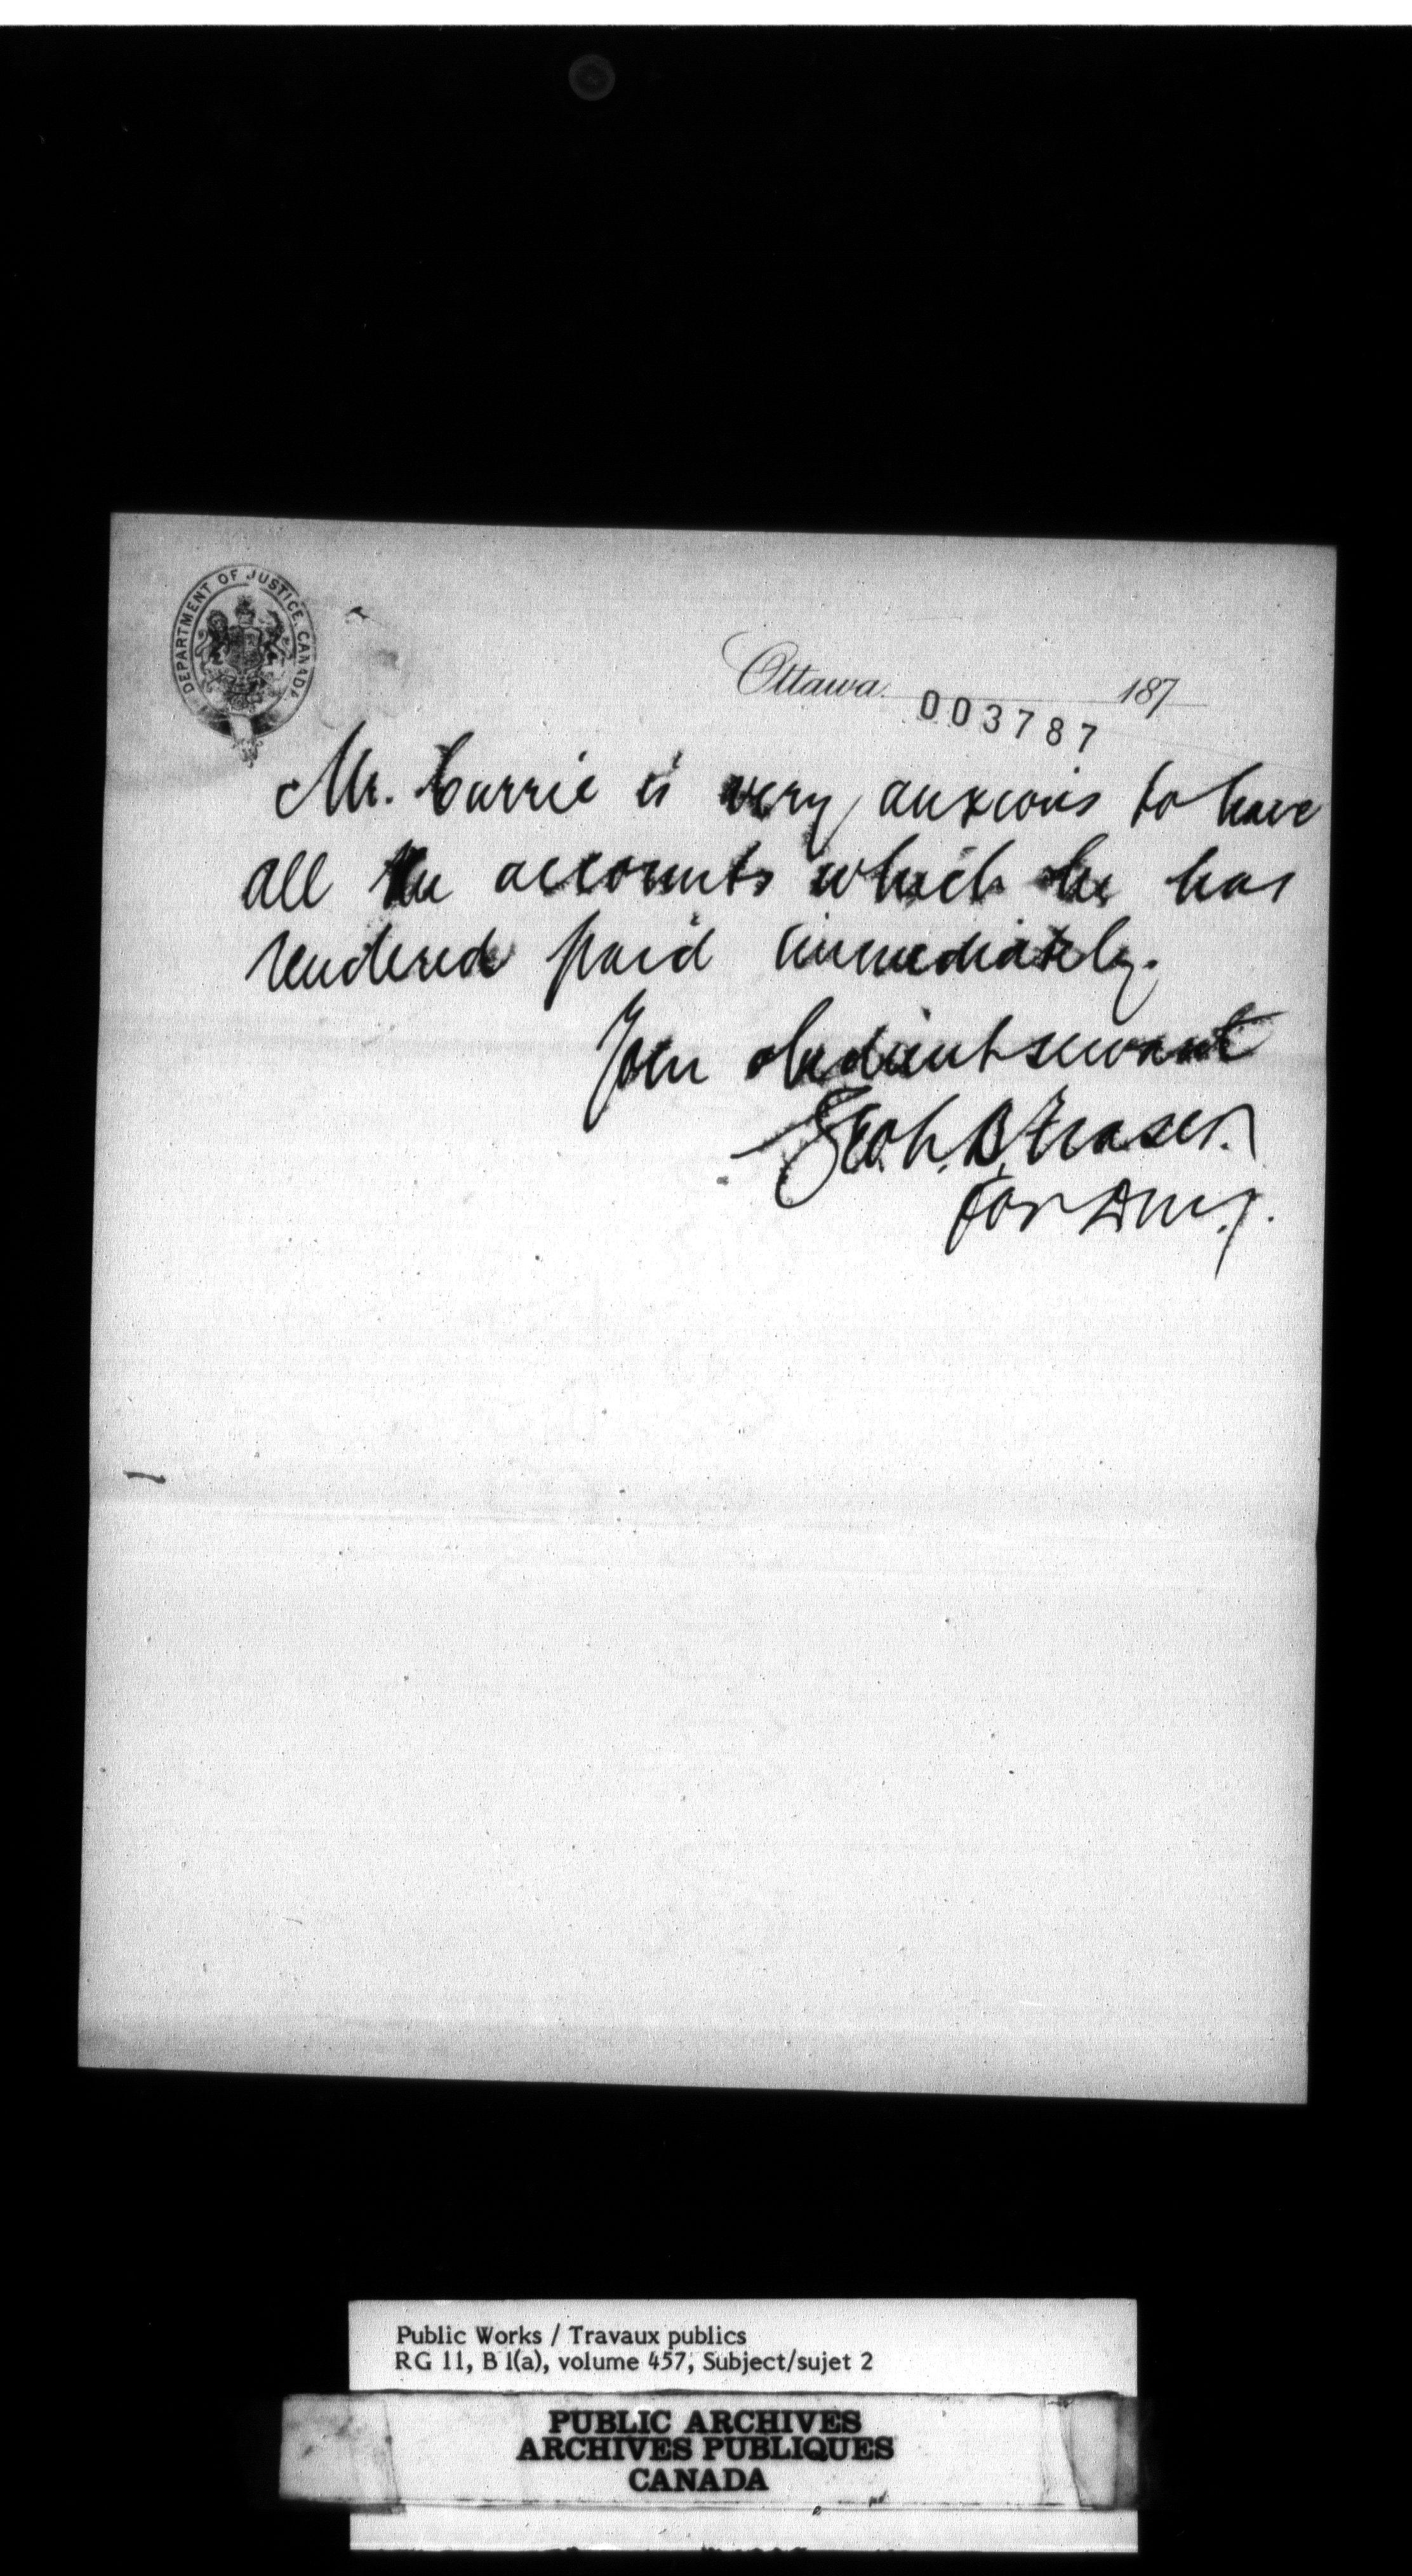 DEPARTMENT OF JUSTICE. CANADA.
Ottawa. 187
003787
Mr. Currie is very anxious to have
all the accounts which he has
rendered paid immediately.
Your obedient servant
Geo. L. B. Fraser.
for D.M.J.
Public Works / Travaux publics
RG 11, B 1(a), volume 457, Subject/sujet 2
PUBLIC ARCHIVES
ARCHIVES PUBLIQUES
CANADA